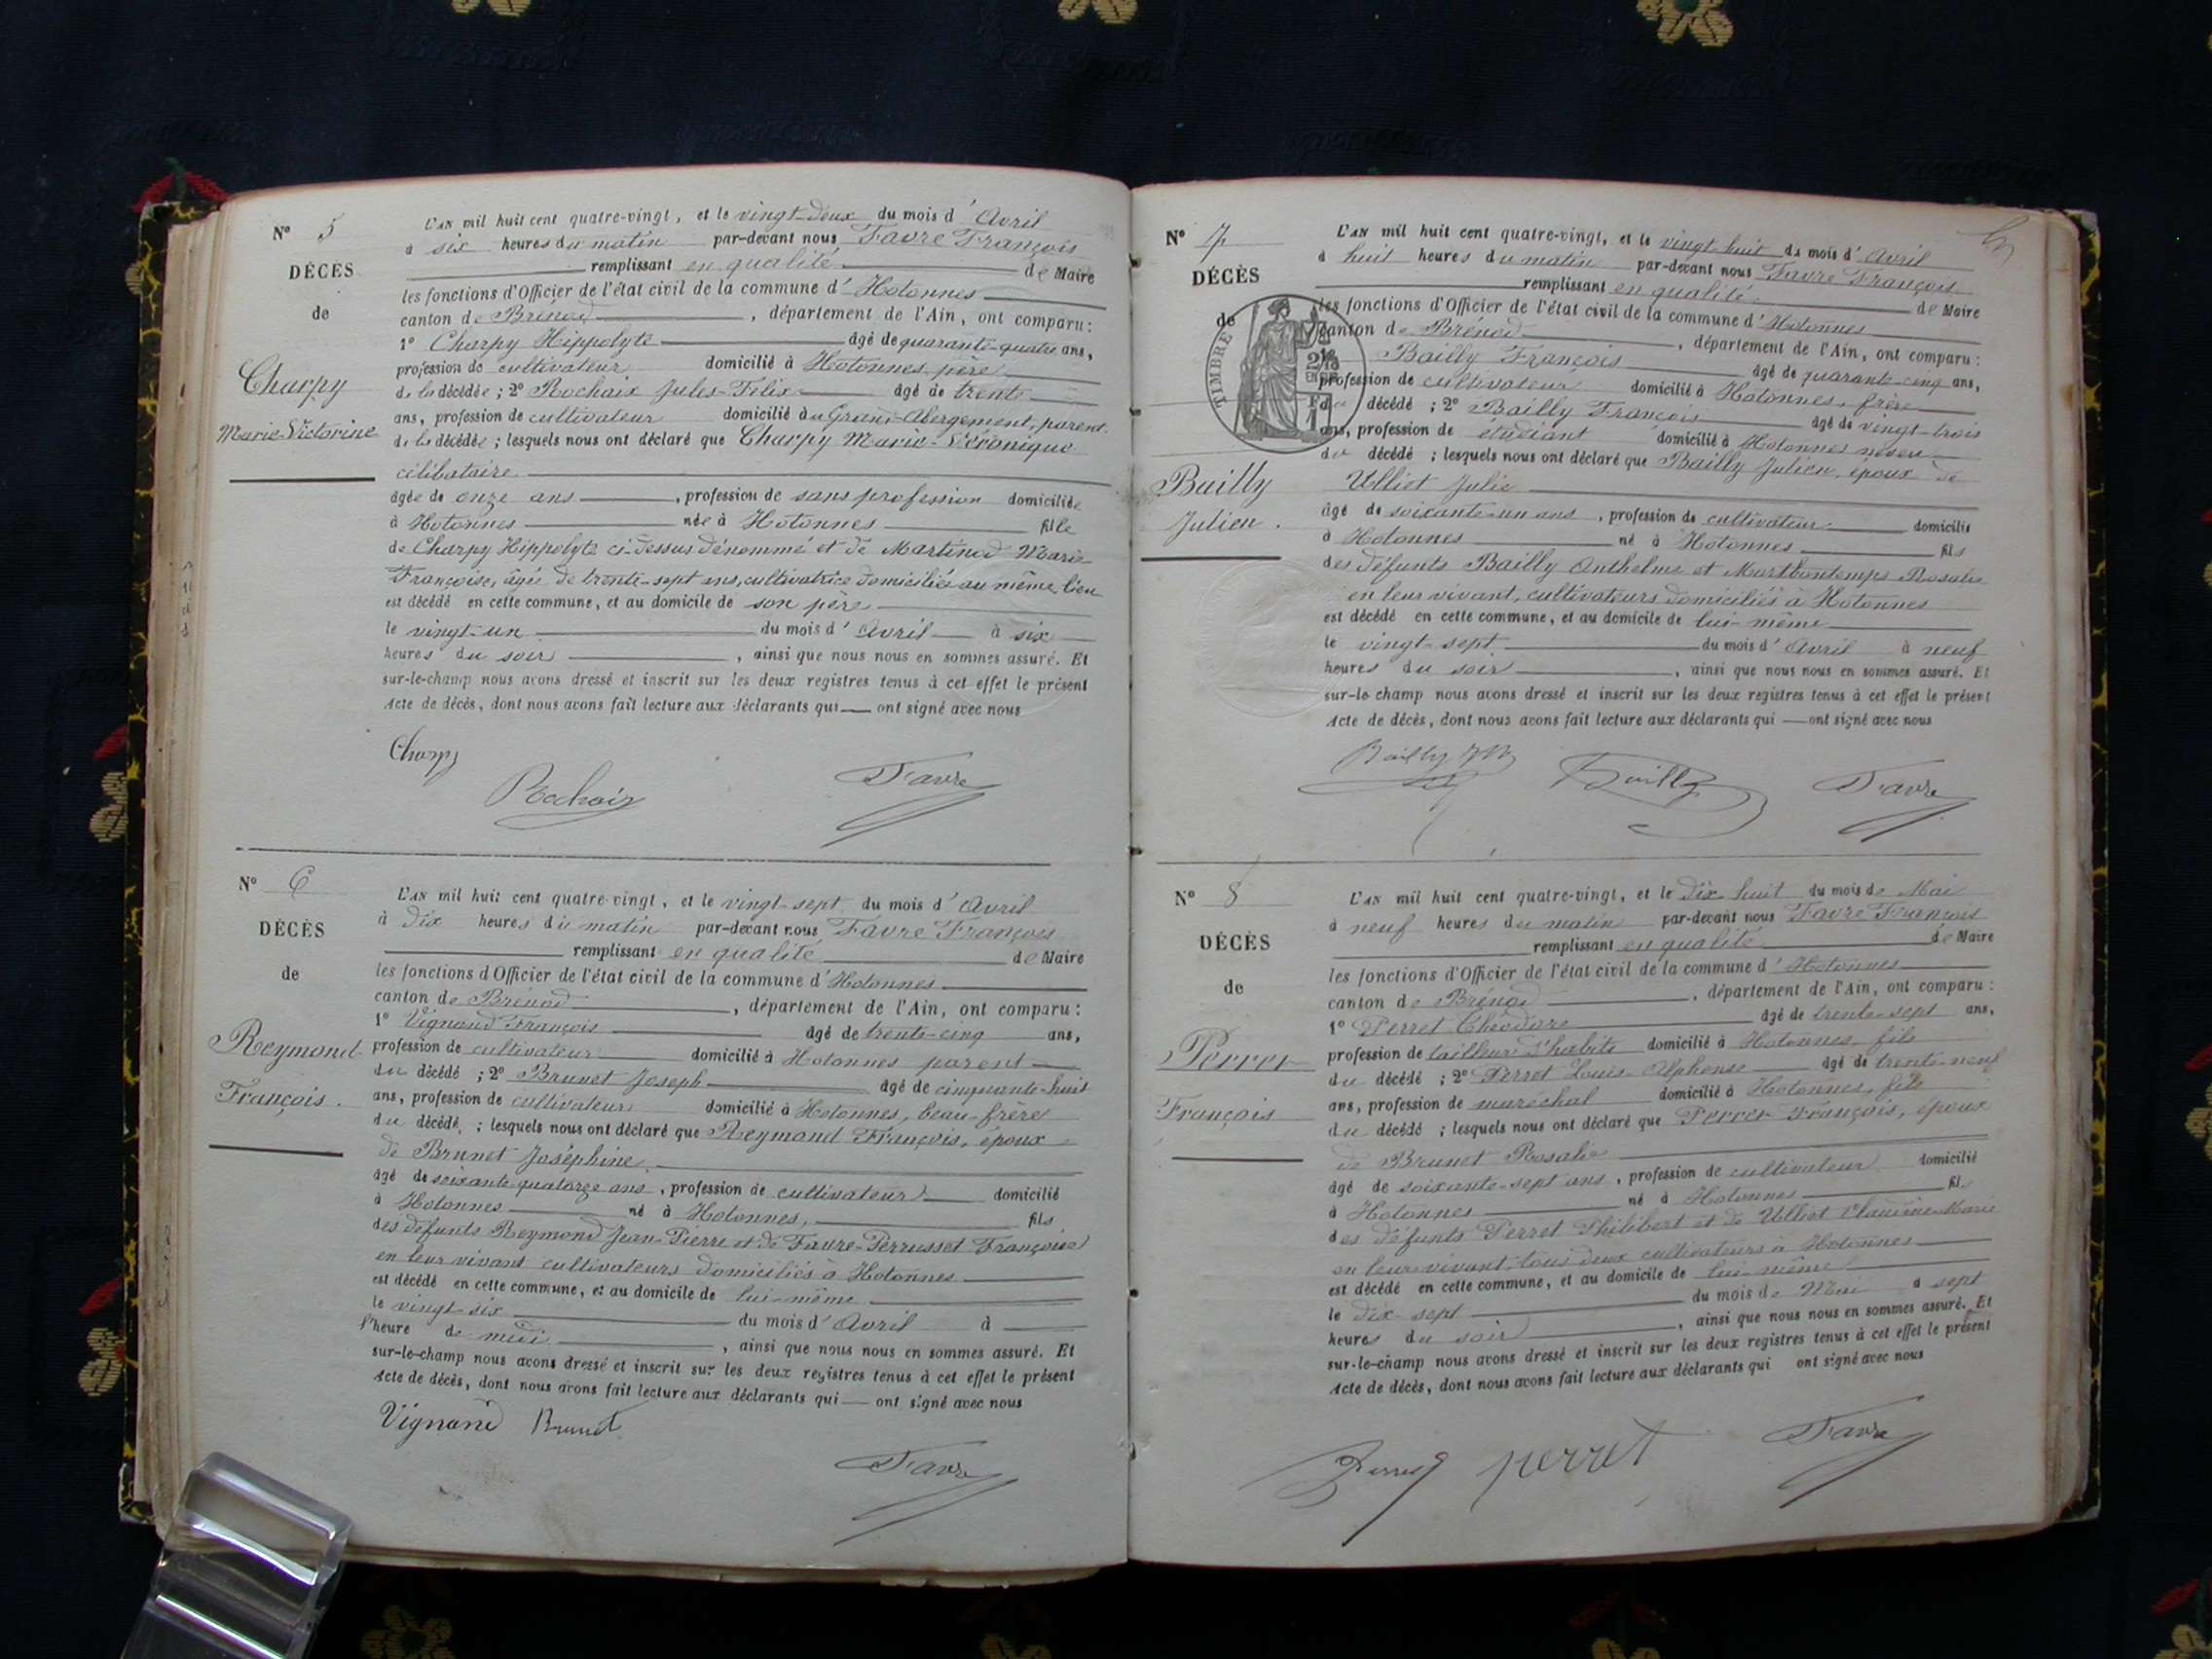 N° 5
DÉCÈS
de
Charpy
Marie-Victorine
L'AN mil huit cent quatre-vingt, et le vingt-deux du mois d'Avril
à six heures du matin par-devant nous Favre François
remplissant en qualité de Maire
les fonctions d'Officier de l'état civil de la commune d'Hotonnes
canton de Brénod, département de l'Ain, ont comparu :
1° Charpy Hippolyte âgé de quarante-quatre ans,
profession de cultivateur domicilié à Hotonnes, père
de la décédée ; 2° Rochaix Jules-Félix âgé de trente
ans, profession de cultivateur domicilié au Grand-Abergement, parent
de la décédée ; lesquels nous ont déclaré que Charpy Marie-Véronique
célibataire
âgée de onze ans, profession de sans profession domiciliée
à Hotonnes née à Hotonnes fille
de Charpy Hippolyte ci-dessus dénommé et de Martinod Marie-
Françoise, âgée de trente-sept ans, cultivatrice domiciliée au même lieu
est décédé en cette commune, et au domicile de son père
le vingt-un du mois d'Avril à six
heures du soir, ainsi que nous nous en sommes assuré. Et
sur-le-champ nous avons dressé et inscrit sur les deux registres tenus à cet effet le présent
Acte de décès, dont nous avons fait lecture aux déclarants qui ont signé avec nous
Charpy
Rochaix
Favre
N° 6
DÉCÈS
de
Reymond
François.
L'AN mil huit cent quatre-vingt, et le vingt-sept du mois d'Avril
à dix heures du matin par-devant nous Favre François
remplissant en qualité de Maire
les fonctions d'Officier de l'état civil de la commune d'Hotonnes
canton de Brénod, département de l'Ain, ont comparu :
1° Vignand François âgé de trente-cinq ans,
profession de cultivateur domicilié à Hotonnes parent
du décédé ; 2° Brunet Joseph âgé de cinquante-huit
ans, profession de cultivateur domicilié à Hotonnes, beau-frère
du décédé ; lesquels nous ont déclaré que Reymond François, époux
de Brunet Joséphine
âgé de soixante-quatorze ans, profession de cultivateur domicilié
à Hotonnes né à Hotonnes, fils
des défunts Reymond Jean-Pierre et de Favre-Perrusset Françoise
en leur vivant cultivateurs domiciliés à Hotonnes
est décédé en cette commune, et au domicile de lui-même
le vingt-six du mois d'Avril à
l'heure de midi, ainsi que nous nous en sommes assuré. Et
sur-le-champ nous avons dressé et inscrit sur les deux registres tenus à cet effet le présent
Acte de décès, dont nous avons fait lecture aux déclarants qui ont signé avec nous
Vignand Brunet
Favre
N° 7
DÉCÈS
de
TIMBRE
Bailly
Julien.
L'AN mil huit cent quatre-vingt, et le vingt-huit du mois d'Avril
à huit heures du matin par-devant nous Favre François
remplissant en qualité de Maire
les fonctions d'Officier de l'état civil de la commune d'Hotonnes
canton de Brénod, département de l'Ain, ont comparu :
Bailly François âgé de quarante-cinq ans,
profession de cultivateur domicilié à Hotonnes, frère
décédé ; 2° Bailly François âgé de vingt-trois
ans, profession de étudiant domicilié à Hotonnes neveu
du décédé ; lesquels nous ont déclaré que Bailly Julien, époux de
Ulliet Julie
âgé de soixante-un ans, profession de cultivateur domicilié
à Hotonnes né à Hotonnes fils
des défunts Bailly Anthelme et Montbontemps Rosalie
en leur vivant, cultivateurs domiciliés à Hotonnes
est décédé en cette commune, et au domicile de lui-même
le vingt-sept du mois d'Avril à neuf
heures du soir, ainsi que nous nous en sommes assuré. Et
sur-le champ nous avons dressé et inscrit sur les deux registres tenus à cet effet le présent
Acte de décès, dont nous avons fait lecture aux déclarants qui ont signé avec nous
Bailly
Bailly
Favre
N° 8
DÉCÈS
de
Perret
François
L'AN mil huit cent quatre-vingt, et le dix-huit du mois de Mai
à neuf heures du matin par-devant nous Favre François
remplissant en qualité de Maire
les fonctions d'Officier de l'état civil de la commune d'Hotonnes
canton de Brénod, département de l'Ain, ont comparu :
1° Perret Théodore âgé de trente-sept ans,
profession de tailleur d'habits domicilié à Hotonnes, fils
du décédé ; 2° Perret Louis-Alphonse âgé de trente-neuf
ans, profession de maréchal domicilié à Hotonnes, fils
du décédé ; lesquels nous ont déclaré que Perret François, époux
de Brunet Rosalie
âgé de soixante-sept ans, profession de cultivateur domicilié
à Hotonnes né à Hotonnes fils
des défunts Perret Philibert et de Ulliet Claudine-Marie
en leur vivant tous deux cultivateurs à Hotonnes
est décédé en cette commune, et au domicile de lui-même
le dix-sept du mois de Mai à sept
heures du soir, ainsi que nous nous en sommes assuré. Et
sur-le-champ nous avons dressé et inscrit sur les deux registres tenus à cet effet le présent
Acte de décès, dont nous avons fait lecture aux déclarants qui ont signé avec nous
Perret perret
Favre